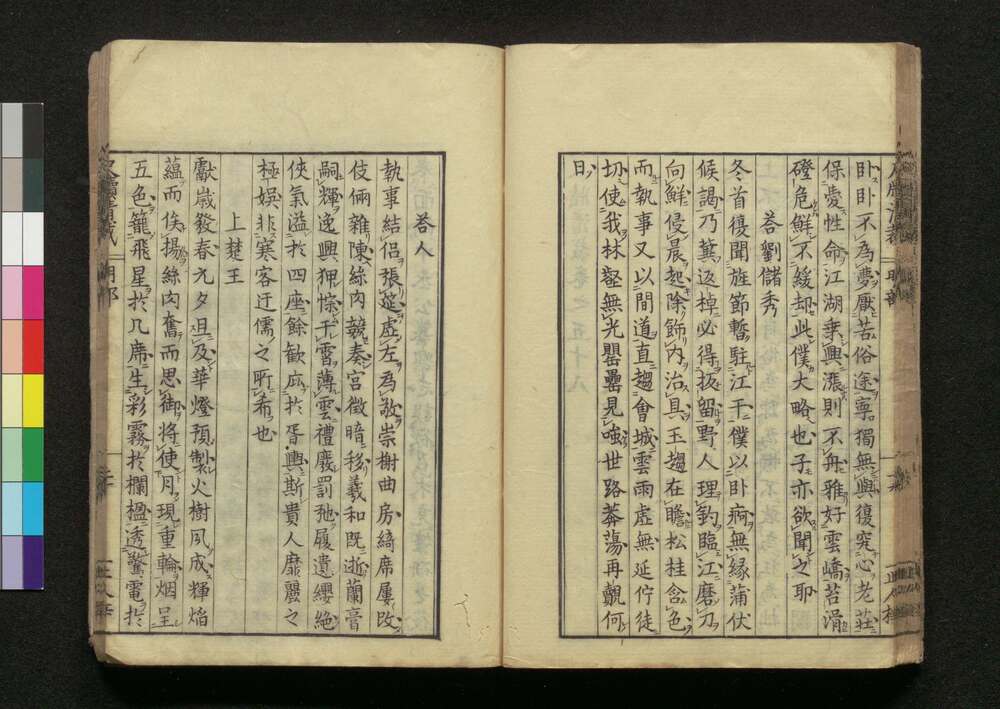 卧卧不為夢厭苦俗途寧獨無與復究心老莊
保愛性命江湖乗興漲則不舟雅好雲嶠苔滑
磴危鮮不緩却此僕大略也子亦欲聞之耶
荅劉儲秀
冬首復聞旌節暫駐江干僕以卧痾無縁蒲伏
候謁乃冀返棹必得扳留野人理釣臨江磨刀
向鮮侵晨起除飾内治具玉趨在瞻松桂含色
而執事又以間道直趨會城雲雨虚無延佇徒
切使我林壑無光罍罍見嗤世路莽蕩再覿何
日
荅人
執事結侣張筵虚左為敬崇榭曲房綺席屢改
伎倆雜陳絲肉競奏宮徵暗移羲和既逝蘭膏
嗣輝逸興狎悰干霄薄雲禮廢罰弛履遺纓絶
俠氣溢於四座餘歓麻於胥興斯貴人靡麗之
極娯非寒客迂儒之所希也
上楚王
獻歳發春元夕且及華燈預製火樹夙成輝焰
蘊而俟揚絲肉奮而思御将使月現重輪烟呈
五色籠飛星於几席生彩霧於欄楹透驚電於